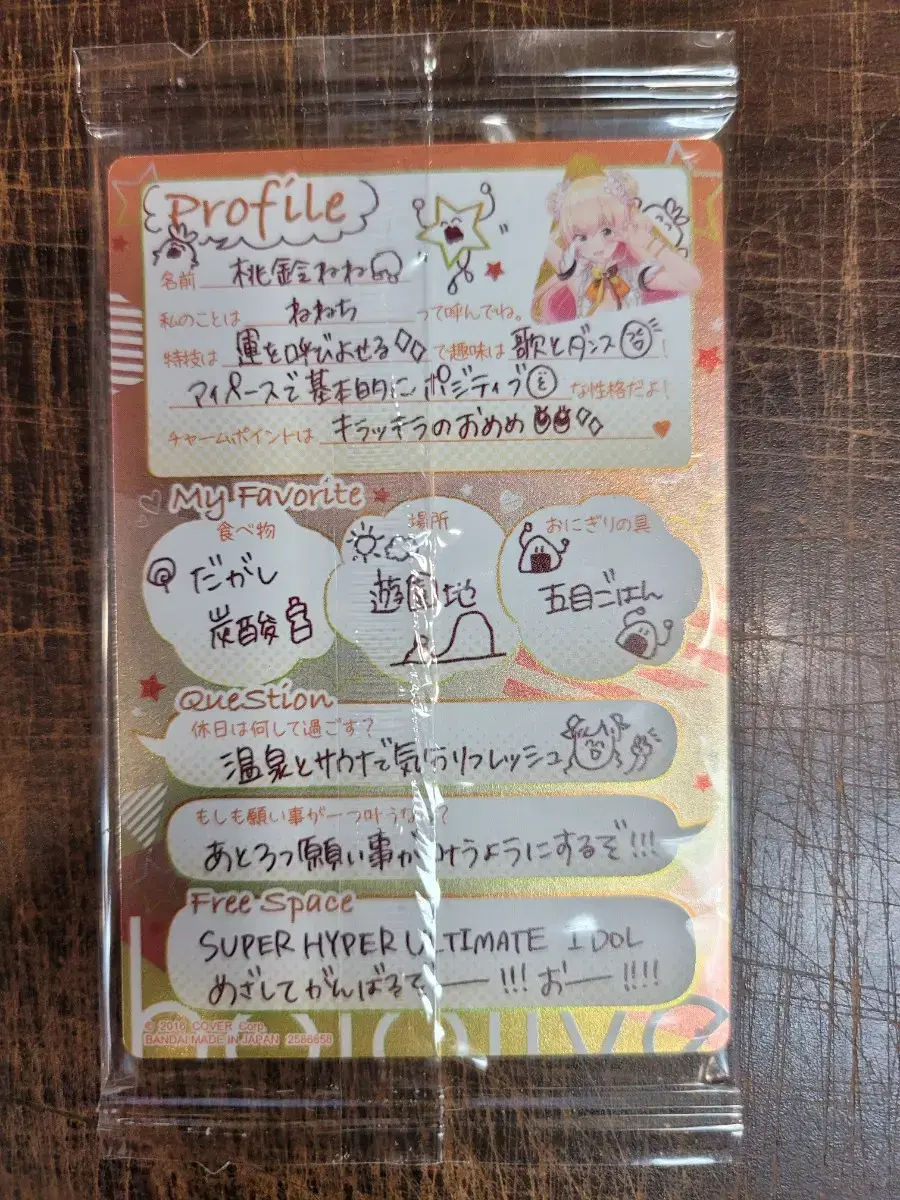 Profile
名前 桃鈴ねね
私のことは ねねち って呼んでね。
特技は 運を呼びよせる で趣味は 歌とダンス !
マイペースで基本的にポジティブ な性格だよ!
チャームポイントは キラッキラのおめめ
My Favorite
食べ物
だがし
炭酸
場所
遊園地
おにぎりの具
五目ごはん
Question
休日は何して過ごす?
温泉とサウナで気分リフレッシュ
もしも願い事が一つ叶うなら?
あと3つ願い事が叶うようにするぞ!!!
Free Space
SUPER HYPER ULTIMATE IDOL
めざしてがんばるぞ——!!! おー— !!!!
hololive
© 2016 COVER Corp.
BANDAI MADE IN JAPAN 2586658